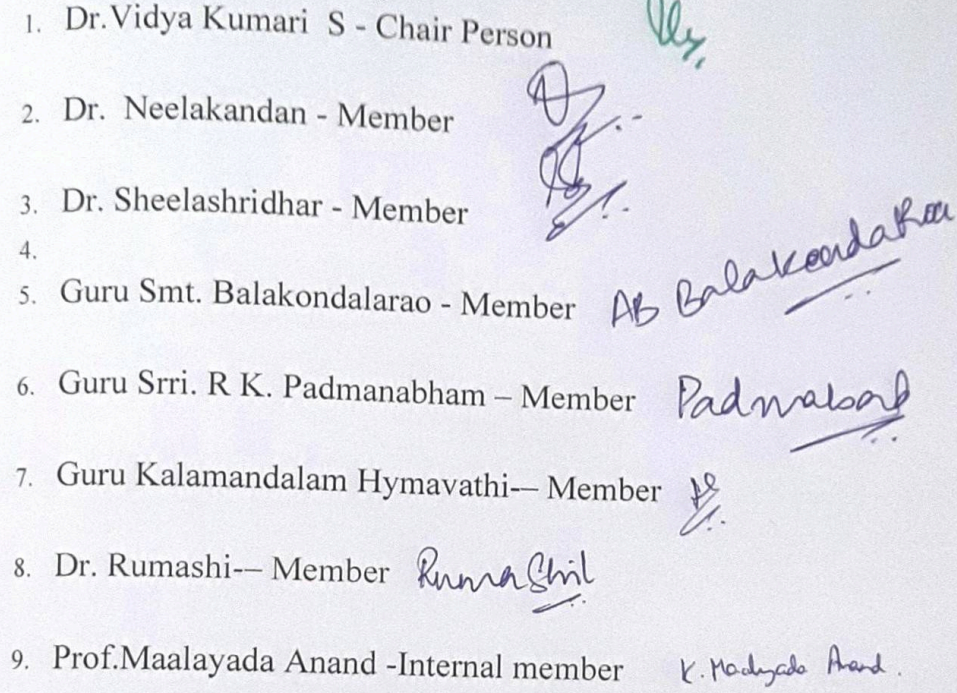 1. Dr.Vidya Kumari S - Chair Person
2. Dr. Neelakandan - Member
3. Dr. Sheelashridhar - Member
4.
5. Guru Smt. Balakondalarao - Member AB Balakondarao
6. Guru Srri. R K. Padmanabham – Member
7. Guru Kalamandalam Hymavathi-– Member
8. Dr. Rumashi-– Member Ruma Shil
9. Prof.Maalayada Anand -Internal member K. Anand.